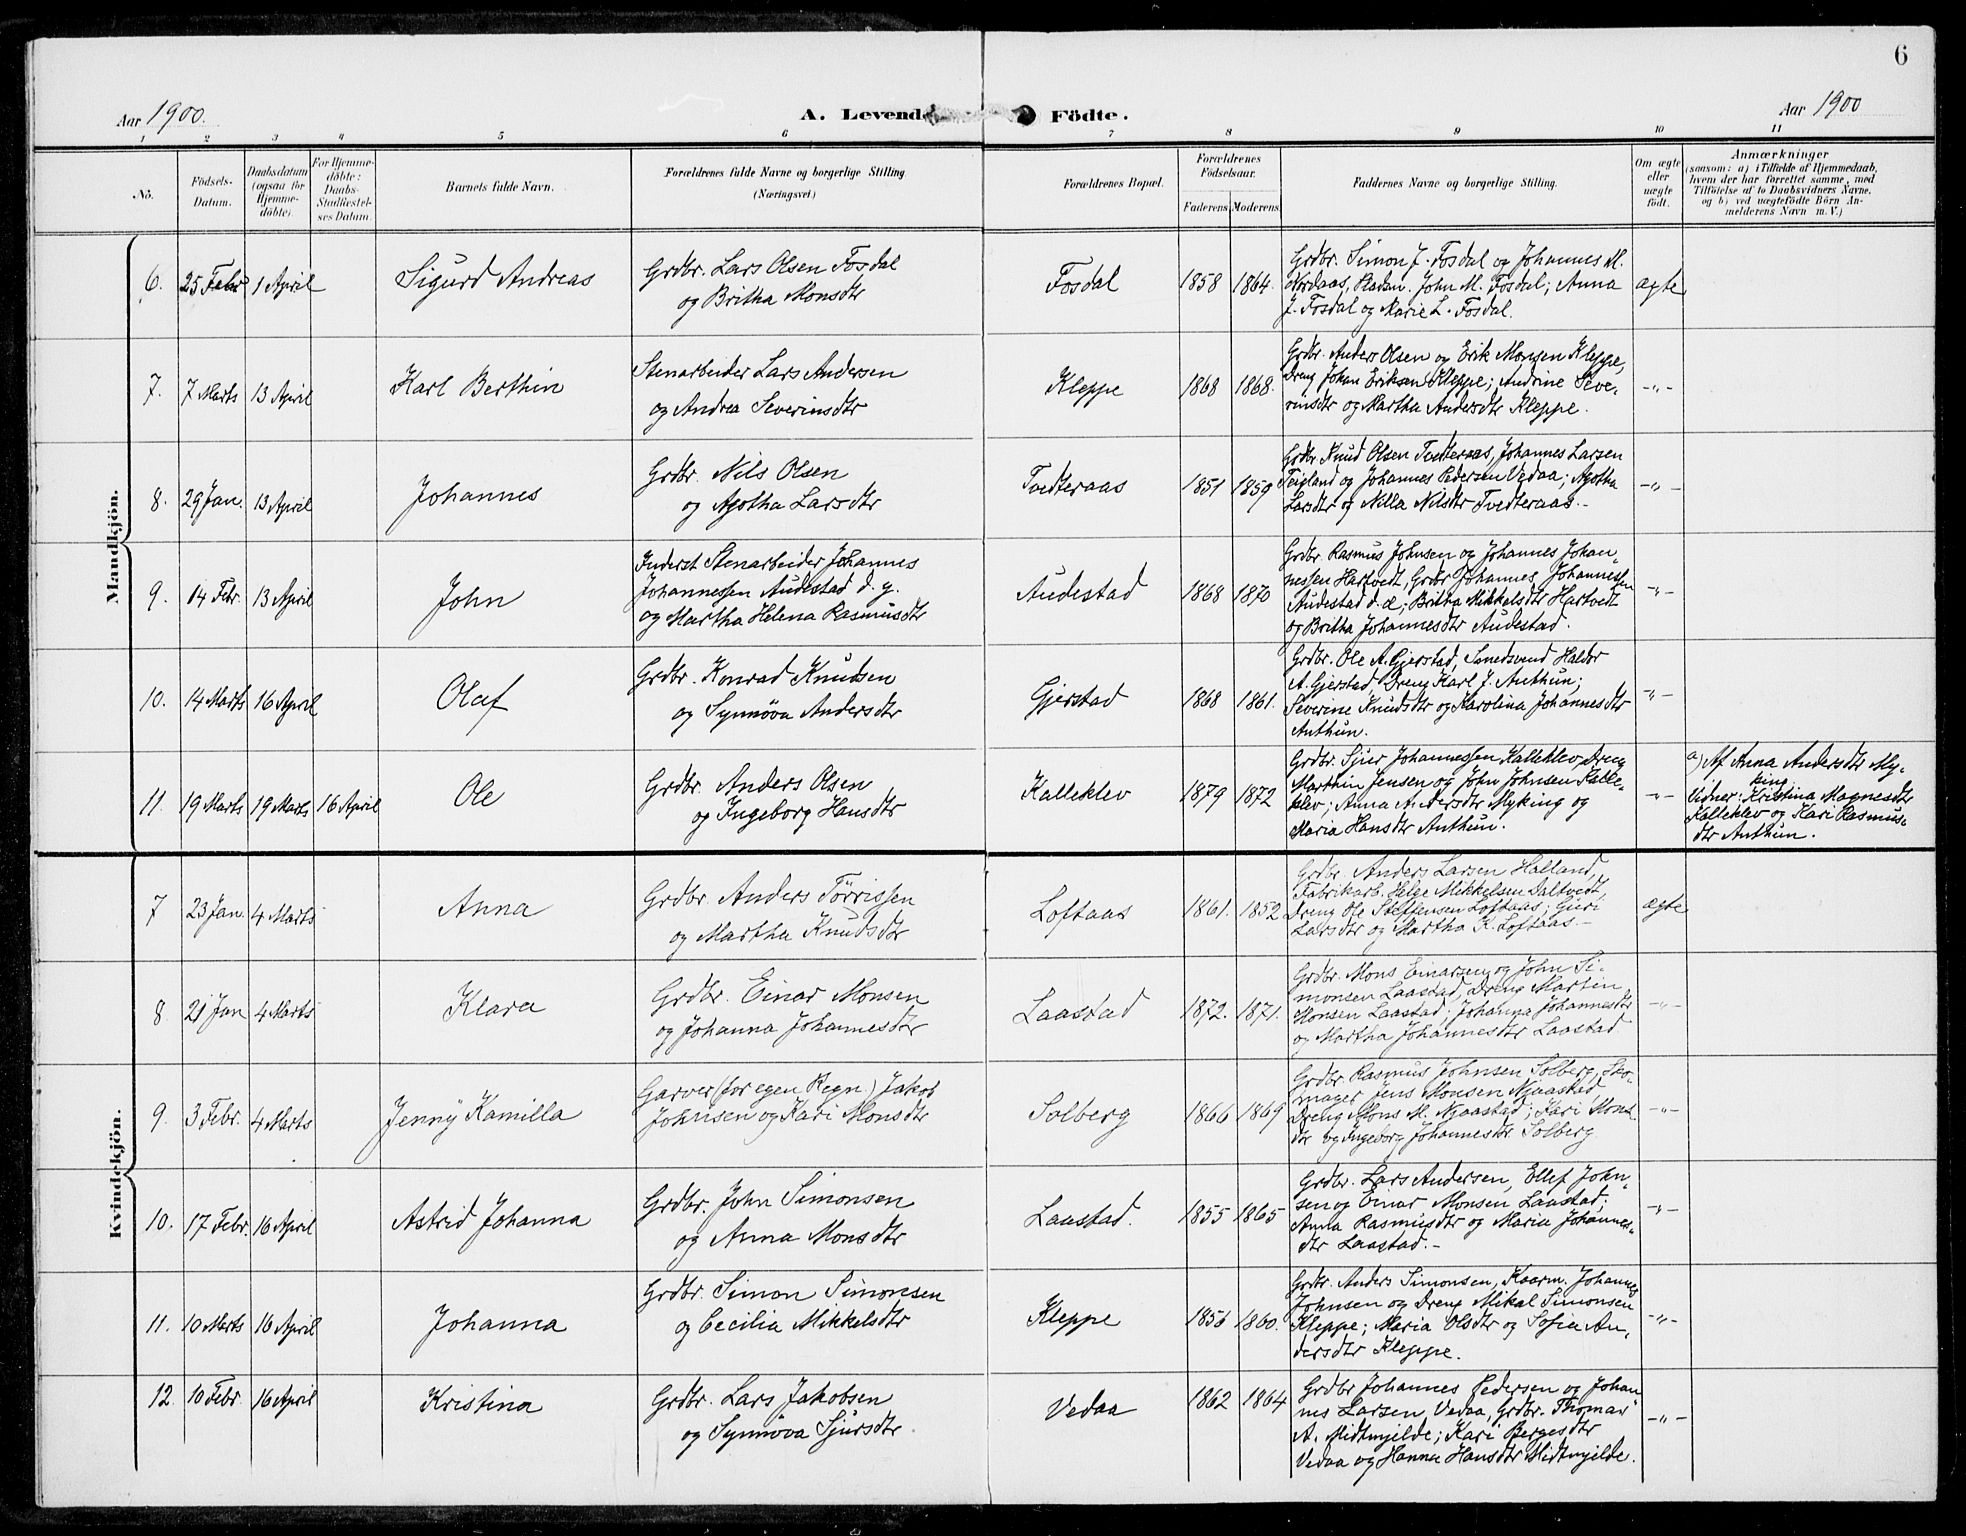 6
Aar 1900.
A. Levende Födte.
Aar 1900
1 2 3 4 5 6 7 8 9 10 11
No.
Födsels-
Datum.
Daabsdatum
(ogsaa for
Hjemme-
døbte).
For Hjemme-
døbte:
Daabs-
Stadfæstel-
ses Datum.
Barnets fulde Navn.
Forældrenes fulde Navne og borgerlige Stilling
(Næringsvei)
Forældrenes Bopæl.
Forældrenes
Födselsaar.
Faderens Moderens
Faddernes Navne og borgerlige Stilling.
Om ægte
eller
uægte
födt.
Anmærkninger
(saasom: a) i Tilfælde af Hjemmedaab,
hvem der har forrettet samme, med
Tilföielse af to Daabsvidners Navne,
og b) ved uægtefödte Börn An-
melderens Navn m. V.)
Mandkjön.
6. 25 Febr 1 April
Sigurd Andreas
Grdbr. Lars Olsen Fosdal
og Britha Monsdtr
Fosdal
1858 1864.
Grdbr. Simon J. Fosdal og Johannes M.
Nordaas, Pladsm. John M. Fosdal; Anna
J. Fosdal og Marie L. Fosdal.
ægte
7. 7 Marts 13 April
Karl Berthin
Stenarbeider Lars Andersen
og Andrea Severinsdtr
Kleppe
1868 1868.
Grdbr. Anders Olsen og Erik Monsen Kleppe,
Dreng Johan Eriksen Kleppe; Andrine Seve-
rinsdtr og Martha Andersdtr Kleppe.
-"-
8. 29 Jan. 13 April
Johannes
Grdbr. Nils Olsen
og Agotha Larsdtr
Tvedteraas
1851 1859
Grdbr Knud Olsen Tvedteraas, Johannes Larsen
Teigland og Johannes Pedersen Vedaa; Agotha
Larsdtr og Nilla Nilsdtr Tvedteraas.-
-"-
9. 14 Febr. 13 April
John
Inderst Stenarbeider Johannes
Johannessen Audestad d. y.
og Martha Helena Rasmusdtr
Audestad
1868 1870
Grdbr. Rasmus Johnsen og Johannes Johan-
nessen Hartvedt, Grdbr Johannes Johannessen
Audestad d. æ; Britha Mikkelsdtr Hartvedt
og Britha Johannesdtr Audestad.
-"-
10. 14 Marts 16 April
Olaf
Grdbr. Konrad Knudsen
og Synnöva Andersdtr
Gjerstad
1868 1861.
Grdbr. Ole A. Gjerstad, Smedsvend Haldor
A. Gjerstad, Dreng Karl J. Anthun;
Severine Knudsdtr og Karolina Johannesdtr
Anthun.
-"-
11. 19 Marts 19 Marts 16 April
Ole
Grdbr. Anders Olsen
og Ingeborg Hansdtr
Kalleklev
1879 1872
Grdbr. Sjur Johannessen Kalleklev, Dreng
Marthin Jensen og John Johnsen Kalle-
klev; Anna Andersdtr Myking og
Maria Hansdtr Anthun.
-"-
a) Af Anna Andersdtr My-
king
Vidner: Kristina Magnesdtr
Kalleklev og Kari Rasmus-
dtr Anthun.
Kvindekjön.
7 23 Jan. 4 Marts
Anna
Grdbr. Anders Törrissen
og Martha Knudsdtr
Loftaas
1861. 1852
Grdbr. Anders Larsen Halland,
Fabrikarb. Helge Mikkelsen Daltvedt,
Dreng Ole Steffensen Loftaas; Guri
Larsdtr og Martha K. Loftaas.-
ægte
8 21 Jan 4 Marts
Klara
Grdbr. Einar Monsen
og Johanna Johannesdtr
Laastad
1872. 1871.
Grdbr. Mons Einarsen og John Si-
monsen Laastad, Dreng Martin
Monsen Laastad; Johanna Johannesdtr
og Martha Johannesdtr Laastad
-"-
9. 3 Febr. 4 Marts
Jenny Kamilla
Garver (for egen Regn.) Jakob
Johnsen og Kari Monsdtr
Solberg
1866 1869
Grdbr Rasmus Johnsen Solberg, Sko-
mager Jens Monsen Njaastad
Dreng Mons M. Njaastad; Kari Mons-
dtr og Ingeborg Johannesdtr Solberg.
-"-
10. 17 Febr. 16 April
Astrid Johanna
Grdbr. John Simonsen
og Anna Monsdtr
Laastad.
1855 1865
Grdbr. Lars Andersen, Ellef John-
sen og Einar Monsen Laastad;
Anna Rasmusdtr og Maria Johannes-
dtr Laastad.-
-"-
11. 10 Marts 16 April
Johanna
Grdbr. Simon Simonsen
og Cecilia Mikkelsdtr
Kleppe
1856 1860.
Grdbr. Anders Simonsen, Kaarm. Johannes
Johnsen og Dreng Mikal Simonsen
Kleppe; Maria Olsdtr og Sofia An-
dersdtr Kleppe.
-"-
12 10 Febr. 16 April
Kristina
Grdbr. Lars Jakobsen
og Synnöva Sjursdtr.
Vedaa
1862 1864
Grdbr Johannes Pedersen og Johan
nes Larsen Vedaa, Grdbr. Thomas
A. Midtmjelde; Kari Bergesdtr
Vedaa og Hanna Hansdtr Midtmjelde.
-"-